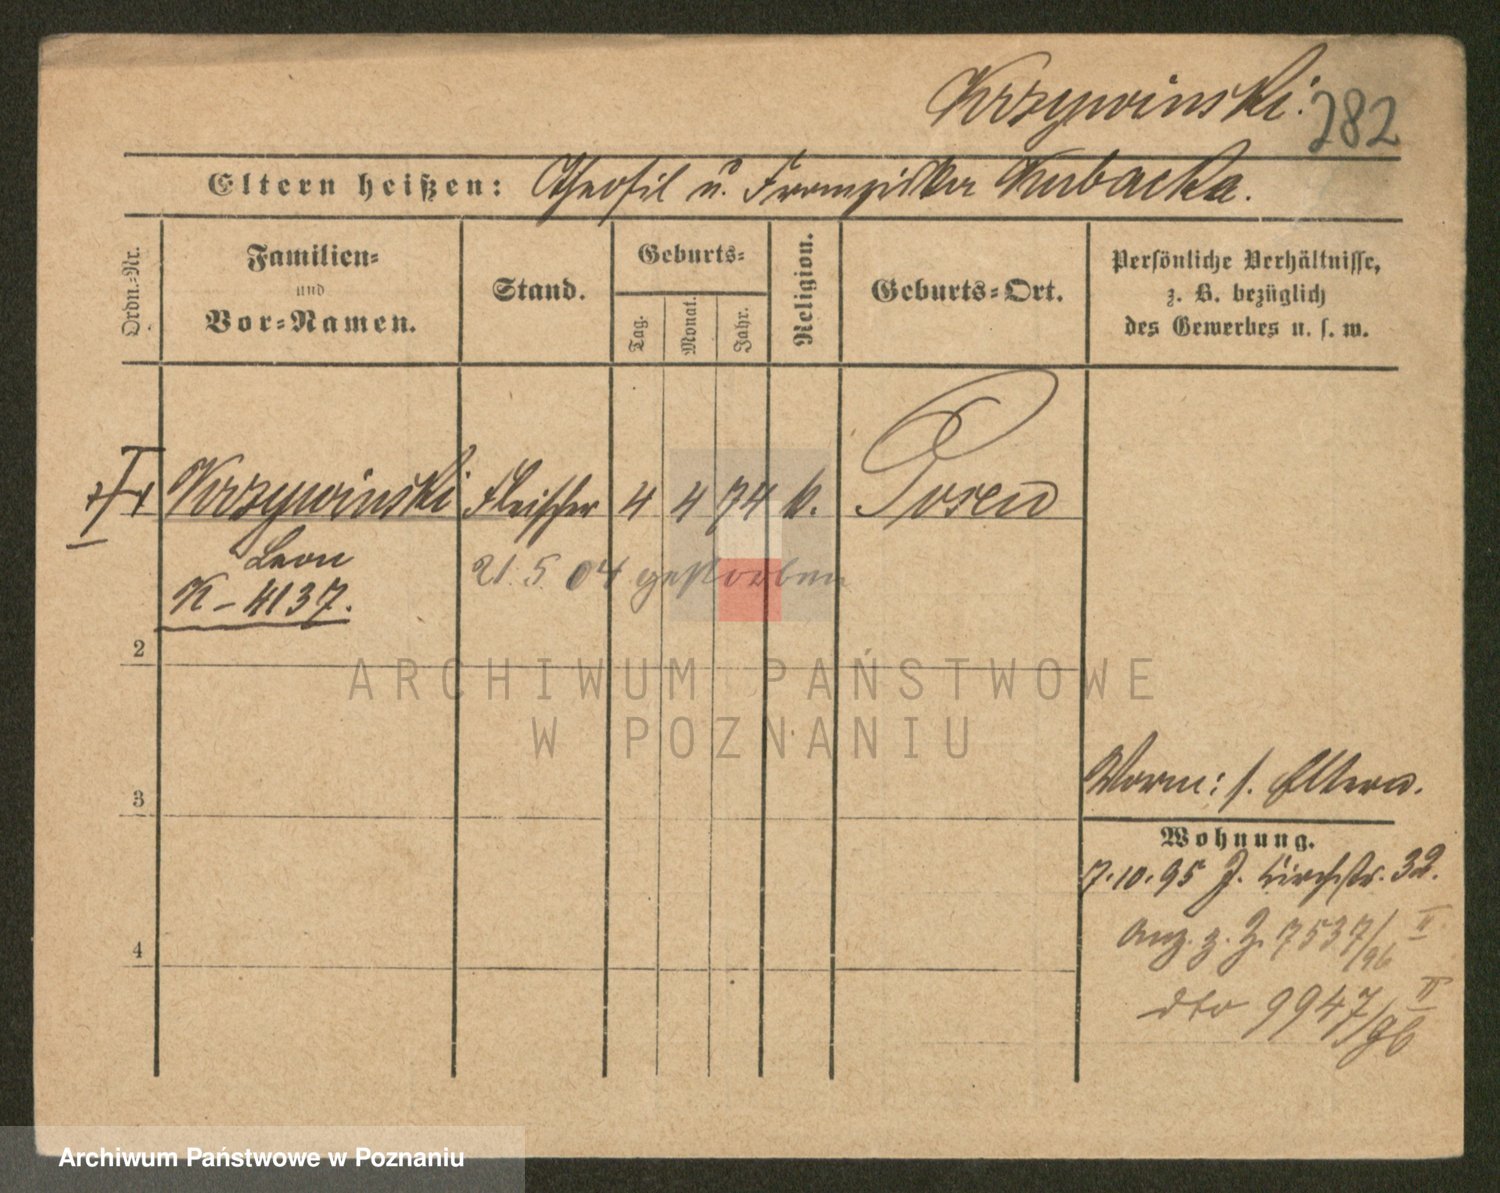 Krzywinski.
282
Eltern heißen: Theofil u. Franziska Kubacka.
Ordn.-Nr.
Familien-
und
Vor-Namen.
Stand.
Geburts-
Tag.
Monat.
Jahr.
Religion.
Geburts-Ort.
Persönliche Verhältnisse,
z. B. bezüglich
des Gewerbes u. s. w.
Krzywinski Fleischer 4 4 74 k. Posen
Leon
21.5.04 gestorben
K-4137.
2
ARCHIWUM PAŃSTWOWE
W POZNANIU
3
Vorm: s. Eltern.
Wohnung.
7.10.95 J. Kirchstr. 32.
4
Anz. z. Z. 7537/96 II
dto 9947/96 II
Archiwum Państwowe w Poznaniu